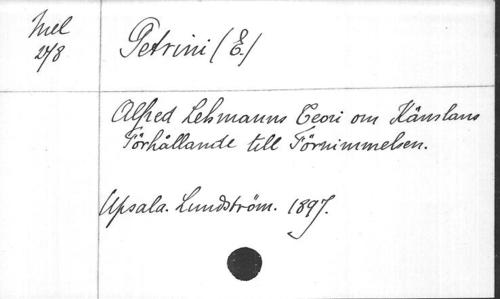 Mel
27/8
Petrini (E.)
Alfred Lehmanns Teori om Känslans
Förhållande till Förnimmelsen.
Upsala. Lundström. 1897.